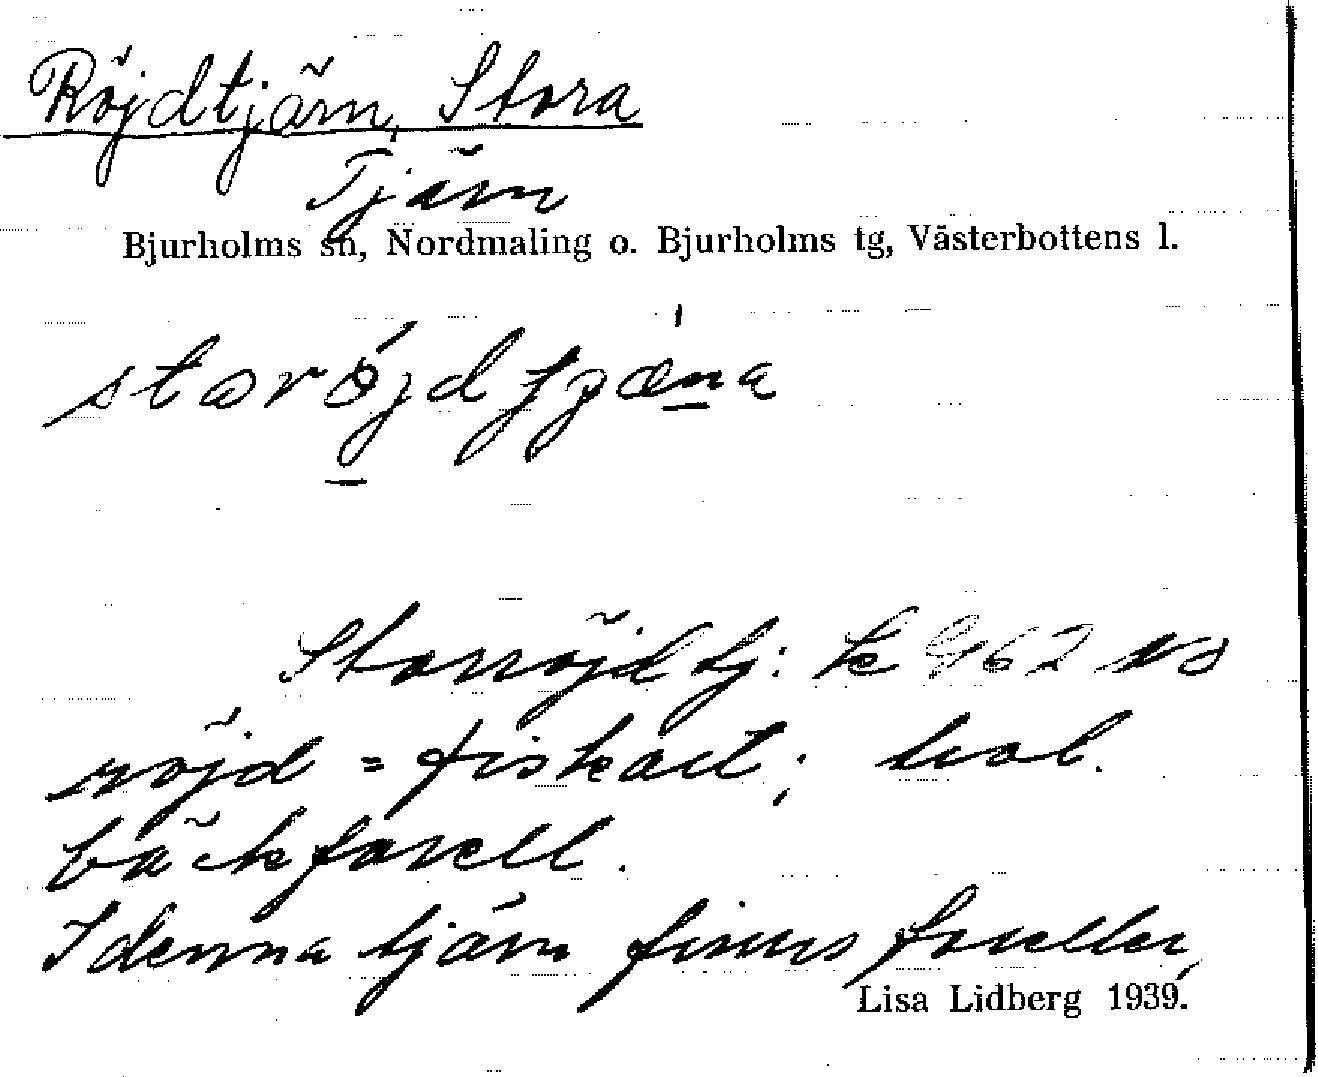 Röjdtjärn, Stora
Tjärn
Bjurholms sn, Nordmaling o. Bjurholms tg, Västerbottens l.
Storröjdtj: k 462 NS
röjd = fiskart; trol.
bäckforell.
I denna tjärn finns foreller,
Lisa Lidberg 1939.